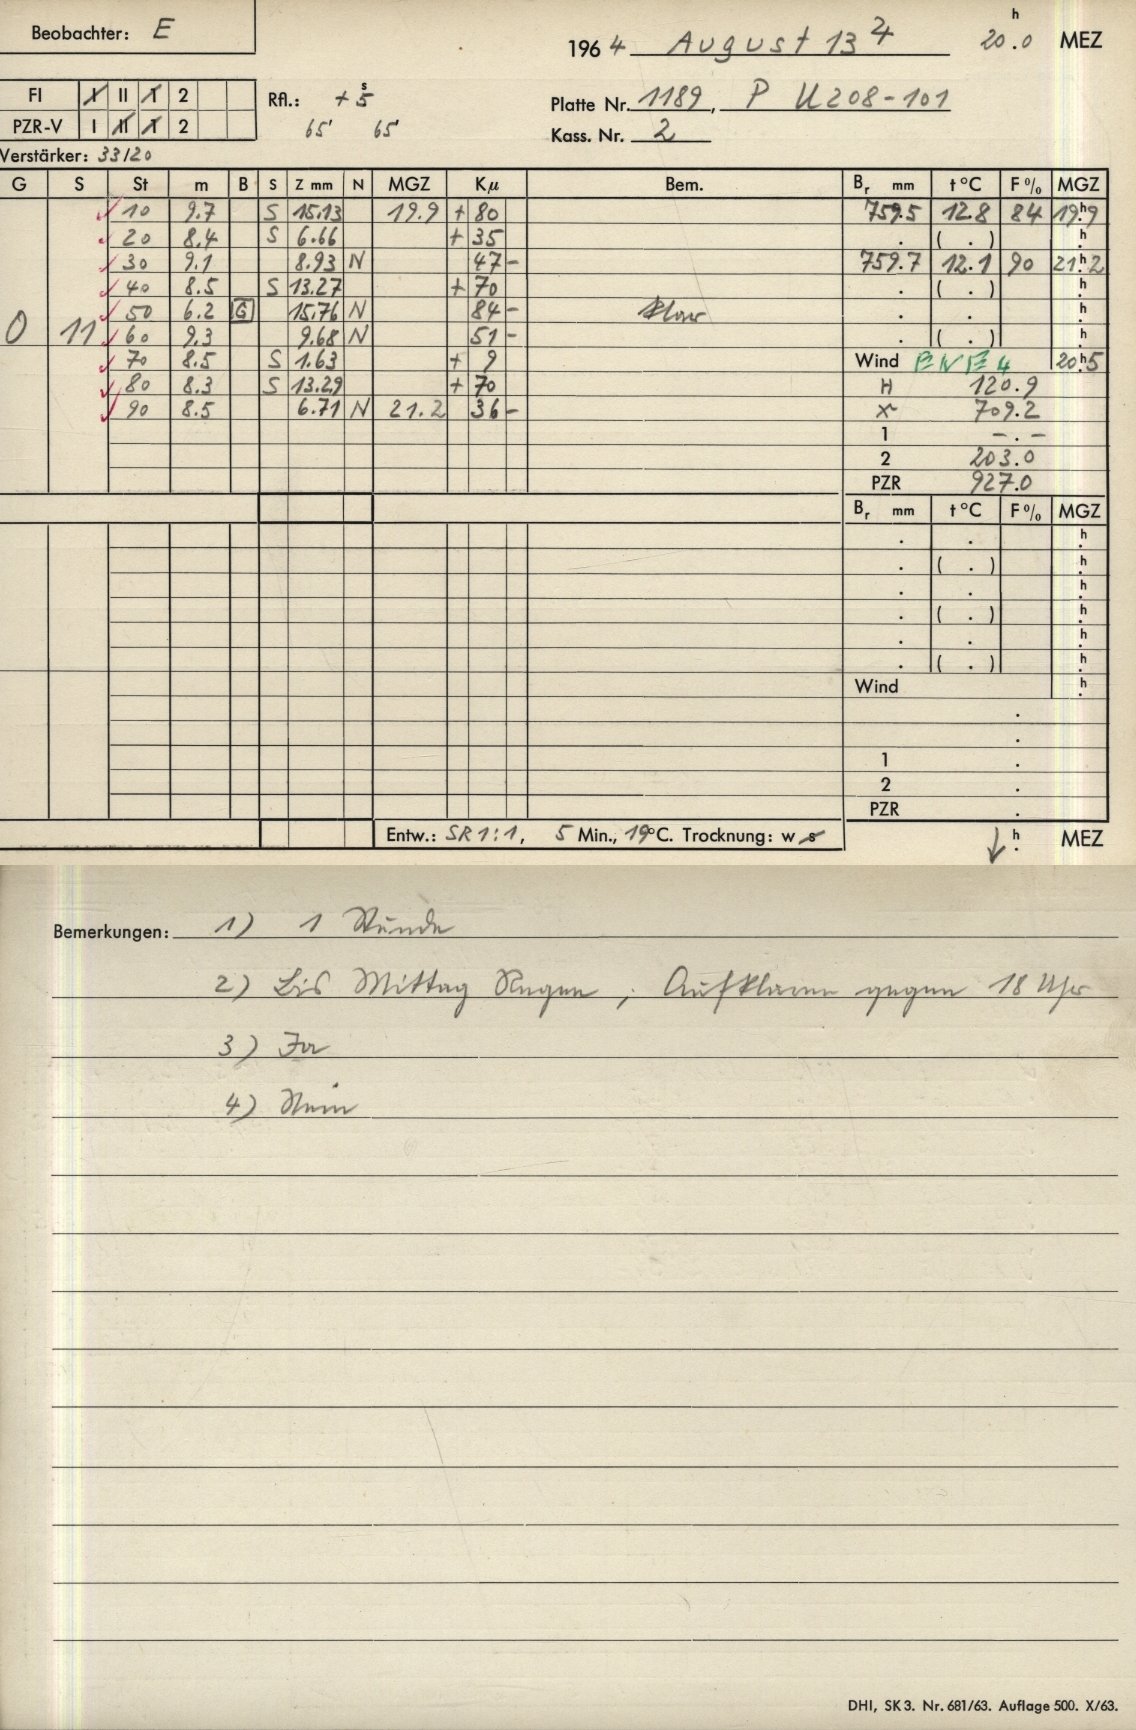 Beobachter: E
1964 August 13 4 20.0 h MEZ
FI I II 1 2
PZR-V I II 1 2
Rfl.: + 5 s
65' 65'
Platte Nr. 1189, P U208-101
Kass. Nr. 2
Verstärker: 33/20
G S St m B S Z mm N MGZ Kμ Bem. Br mm t °C F % MGZ
10 9.7 S 15.13 19.9 + 80 759.5 12.8 84 19.h9
20 8.4 S 6.66 + 35 . ( . ) h
30 9.1 8.93 N 47 - 759.7 12.1 90 21.h2
40 8.5 S 13.27 + 70 . ( . ) h
50 6.2 G 15.76 N 84 - klar . . h
0 11 60 9.3 9.68 N 51 - . ( . ) h
70 8.5 S 1.63 + 9 Wind ENE 4 20.h5
80 8.3 S 13.29 + 70 H 120.9
90 8.5 6.71 N 21.2 36 - x 709.2
1 -.-
2 203.0
PZR 927.0
Br mm t °C F % MGZ
. . h
. ( . ) h
. . h
. ( . ) h
. . h
. ( . ) h
Wind h
.
.
1 .
2 .
PZR .
Entw.: SR 1:1, 5 Min., 19°C. Trocknung: w s h MEZ
Bemerkungen: 1) 1 Stunde
2) Bis Mittag Regen; Aufklaren gegen 18 Uhr
3) Ja
4) Nein
DHI, SK 3. Nr. 681/63. Auflage 500. X/63.